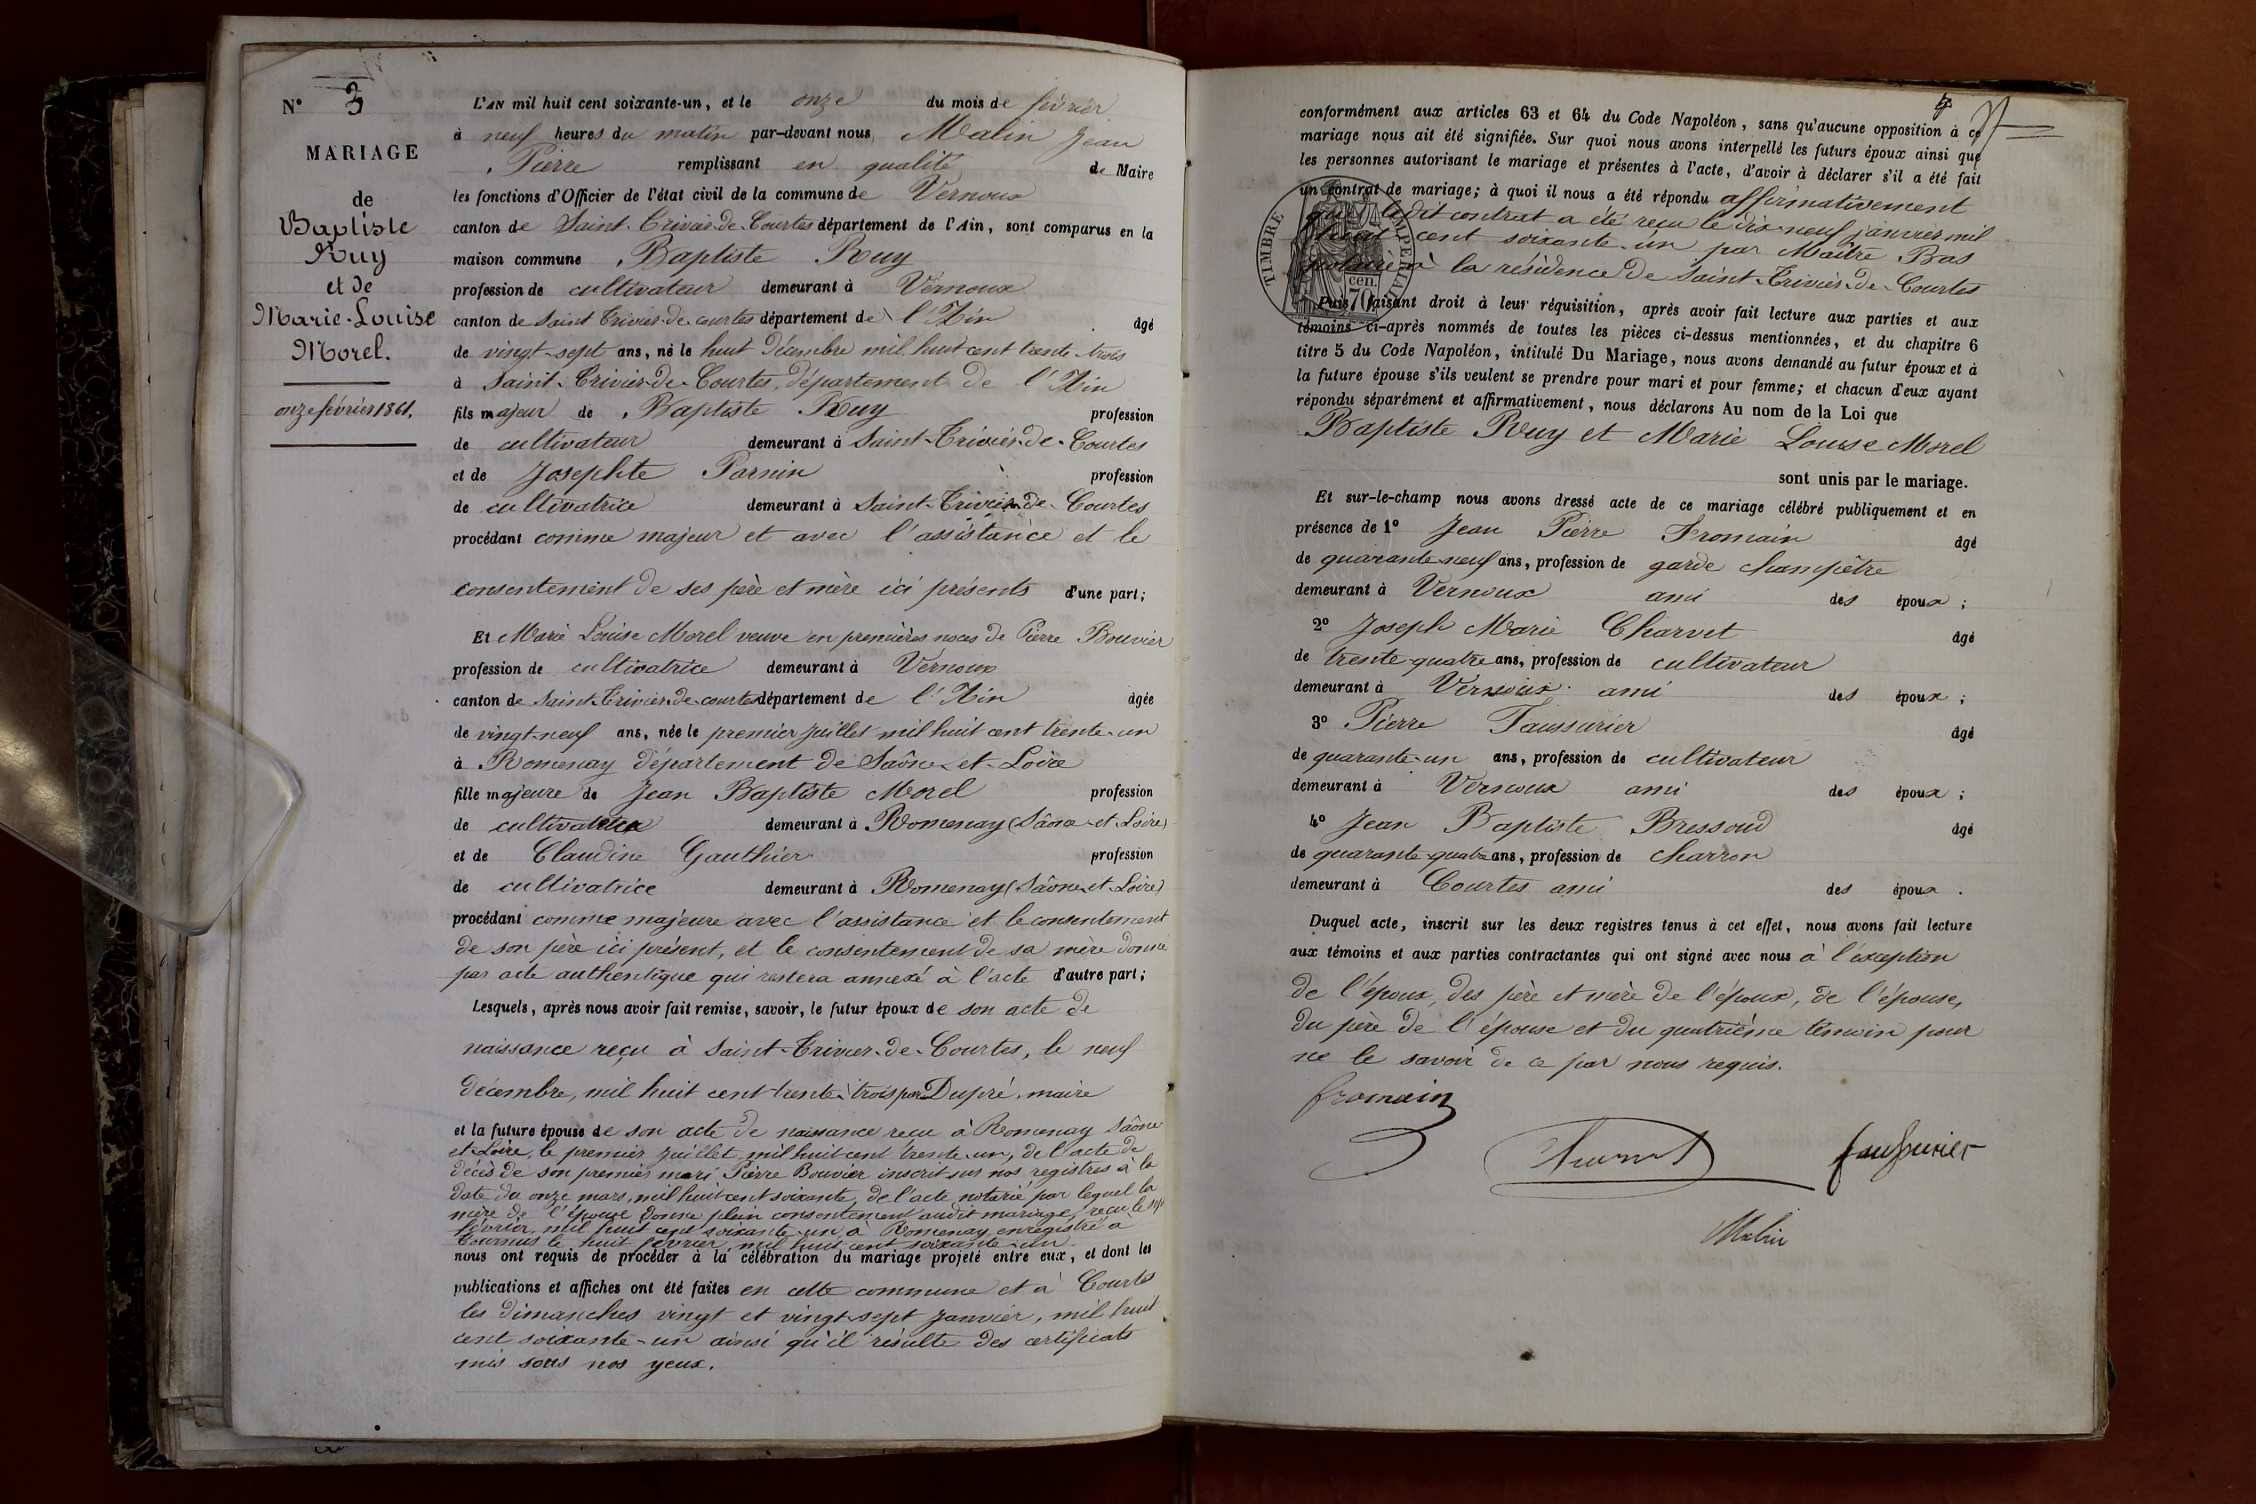 N° 3
MARIAGE
de
Baptiste
Ruy
et de
Marie-Louise
Morel.
onze février 1861.
L'AN mil huit cent soixante-un, et le onze du mois de février
à neuf heures du matin par-devant nous Malin Jean
Pierre remplissant en qualité de Maire
les fonctions d'Officier de l'état civil de la commune de Vernoux
canton de Saint-Trivier-de-Courtes département de l'Ain, sont comparus en la
maison commune Baptiste Ruy
profession de cultivateur demeurant à Vernoux
canton de Saint Trivier-de-courtes département de l'Ain âgé
de vingt-sept ans, né le huit décembre mil huit cent trente-trois
à Saint-Trivier-de-Courtes, département de l'Ain
fils majeur de Baptiste Ruy profession
de cultivateur demeurant à Saint-Trivier-de-Courtes
et de Josephte Parnin profession
de cultivatrice demeurant à Saint-Trivier-de-Courtes
procédant comme majeur et avec l'assistance et le
consentement de ses père et mère ici présents d'une part;
Et Marie Louise Morel veuve en premières noces de Pierre Bouvier
profession de cultivatrice demeurant à Vernoux
canton de Saint-Trivier-de-courtes département de l'Ain âgée
de vingt-neuf ans, née le premier juillet mil huit cent trente-un
à Romenay département de Saône-et-Loire
fille majeure de Jean Baptiste Morel profession
de cultivateur demeurant à Romenay (Saône-et-Loire)
et de Claudine Gauthier profession
de cultivatrice demeurant à Romenay (Saône-et-Loire)
procédant comme majeure avec l'assistance et le consentement
de son père ici présent, et le consentement de sa mère donné
par acte authentique qui restera annexé à l'acte d'autre part;
Lesquels, après nous avoir fait remise, savoir, le futur époux de son acte de
naissance reçu à Saint-Trivier-de-Courtes, le neuf
décembre, mil huit cent trente-trois par Dupré, maire
et la future épouse de son acte de naissance reçu à Romenay Saône
et-Loire, le premier juillet mil huit cent trente-un, de l'acte de
décès de son premier mari Pierre Bouvier inscrit sur nos registres à la
date du onze mars, mil huit cent soixante, de l'acte notarié par lequel la
mère de l'épouse donne plein consentement audit mariage, reçu le sept
février, mil huit cent soixante-un, à Romenay enregistré à
Tournus le huit février, mil huit cent soixante-un.
nous ont requis de procéder à la célébration du mariage projeté entre eux, et dont les
publications et affiches ont été faites en cette commune et à Courtes
les dimanches vingt et vingt-sept janvier, mil huit
cent soixante-un ainsi qu'il résulte des certificats
mis sous nos yeux.
conformément aux articles 63 et 64 du Code Napoléon, sans qu'aucune opposition à ce
mariage nous ait été signifiée. Sur quoi nous avons interpellé les futurs époux ainsi que
les personnes autorisant le mariage et présentes à l'acte, d'avoir à déclarer s'il a été fait
un contrat de mariage; à quoi il nous a été répondu affirmativement
que ledit contrat a été reçu le dix-neuf janvier mil
huit cent soixante-un par Maître Bas
notaire à la résidence de Saint-Trivier-de-Courtes
TIMBRE IMPERIAL
70 cen.
Puis, faisant droit à leur réquisition, après avoir fait lecture aux parties et aux
témoins ci-après nommés de toutes les pièces ci-dessus mentionnées, et du chapitre 6
titre 5 du Code Napoléon, intitulé Du Mariage, nous avons demandé au futur époux et à
la future épouse s'ils veulent se prendre pour mari et pour femme; et chacun d'eux ayant
répondu séparément et affirmativement, nous déclarons Au nom de la Loi que
Baptiste Ruy et Marie Louise Morel
sont unis par le mariage.
Et sur-le-champ nous avons dressé acte de ce mariage célébré publiquement et en
présence de 1° Jean Pierre Fromain âgé
de quarante-neuf ans, profession de garde champêtre
demeurant à Vernoux ami des époux;
2° Joseph Marie Charvet âgé
de trente-quatre ans, profession de cultivateur
demeurant à Vernoux ami des époux;
3° Pierre Faussurier âgé
de quarante-un ans, profession de cultivateur
demeurant à Vernoux ami des époux;
4° Jean Baptiste Bressoud âgé
de quarante-quatre ans, profession de charron
demeurant à Courtes ami des époux.
Duquel acte, inscrit sur les deux registres tenus à cet effet, nous avons fait lecture
aux témoins et aux parties contractantes qui ont signé avec nous à l'exception
de l'époux, des père et mère de l'époux, de l'épouse,
du père de l'épouse et du quatrième témoin pour
ne le savoir de ce par nous requis.
fromain
Charvet
faussurier
Malin